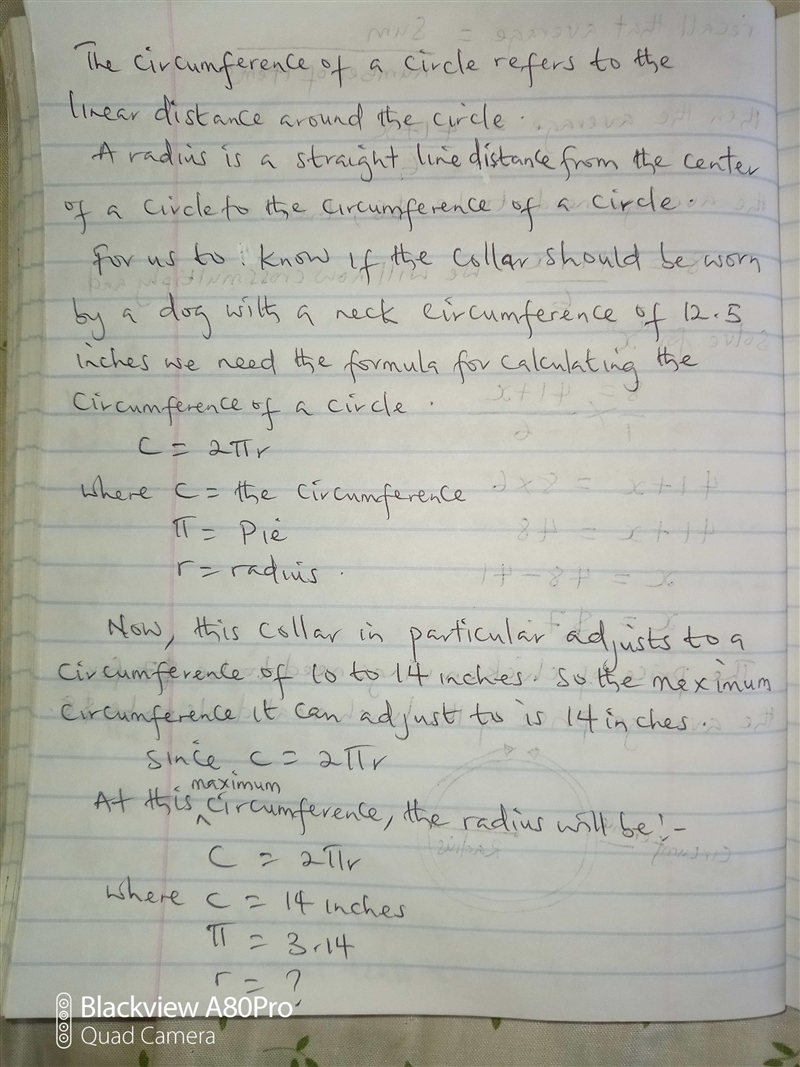 The circumference of a circle refers to the
linear distance around the circle.
A radius is a straight line distance from the center
of a circle to the circumference of a circle.
For us to know if the collar should be worn
by a dog with a neck circumference of 12.5
inches we need the formula for calculating the
circumference of a circle.
C = 2πr
where C = the circumference
π = Pie
r = radius.
Now, this collar in particular adjusts to a
circumference of 10 to 14 inches. So the meximum
circumference it can adjust to is 14 inches.
Since C = 2πr
At this ^maximum circumference, the radius will be:-
C = 2πr
where C = 14 inches
π = 3.14
r = ?
Blackview A80Pro
Quad Camera